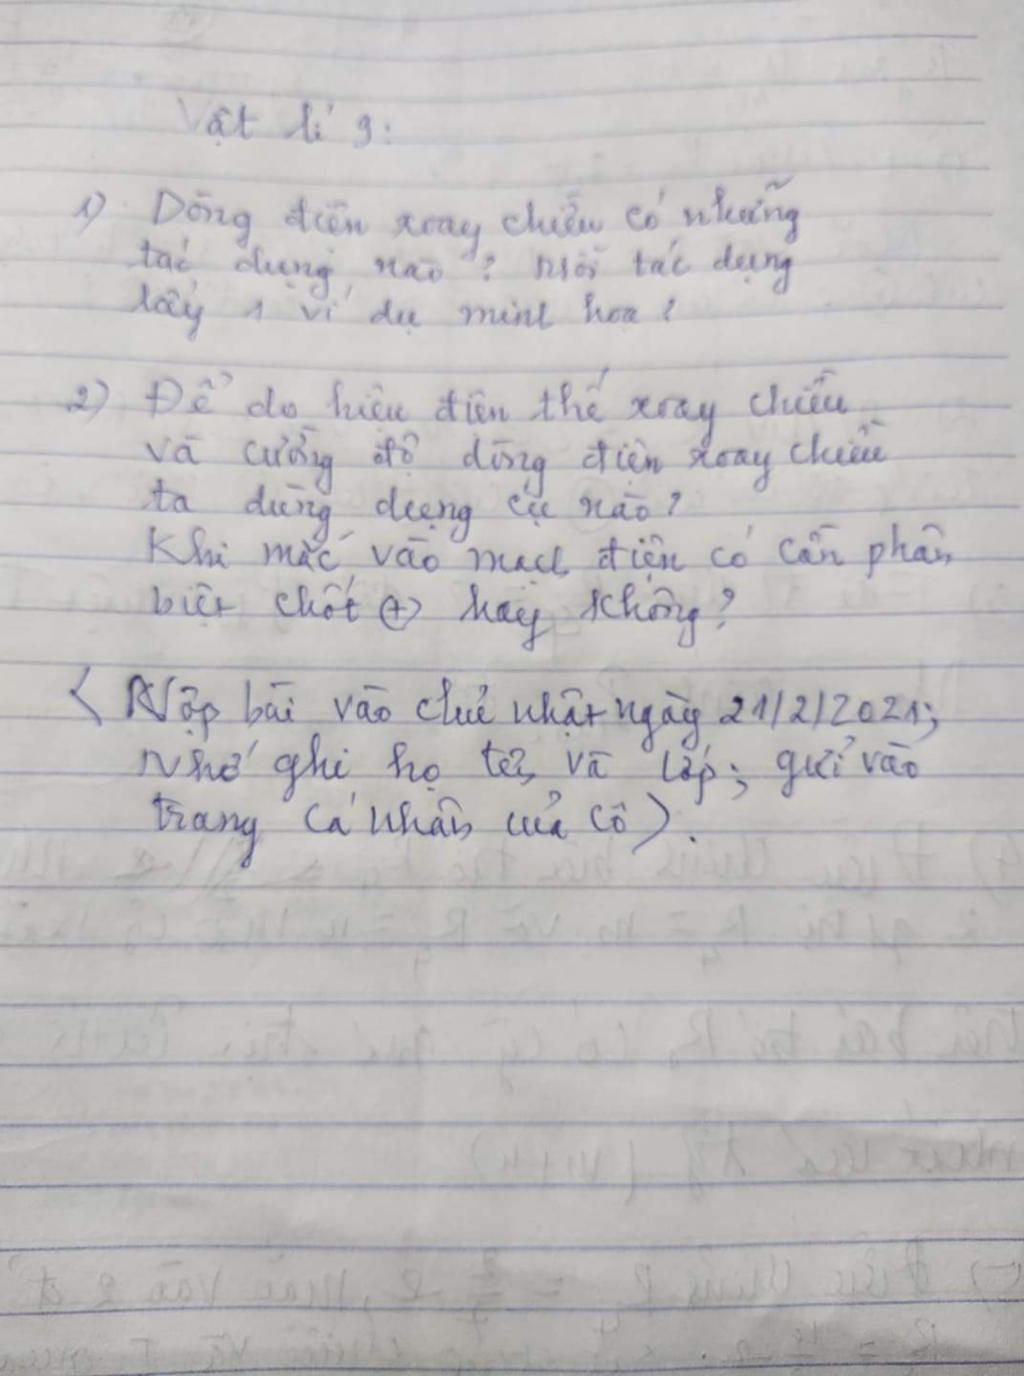 Vật lí 9:
1) Dòng điện xoay chiều có những
tác dụng nào? Mỗi tác dụng
lấy 1 ví dụ minh hoạ?
2) Để đo hiệu điện thế xoay chiều
và cường độ dòng điện xoay chiều
ta dùng dụng cụ nào?
Khi mắc vào mạch điện có cần phân
biệt chốt (+) hay không?
(Nộp bài vào chủ nhật ngày 21/2/2021;
Nhớ ghi họ tên và lớp; gửi vào
trang cá nhân của cô).